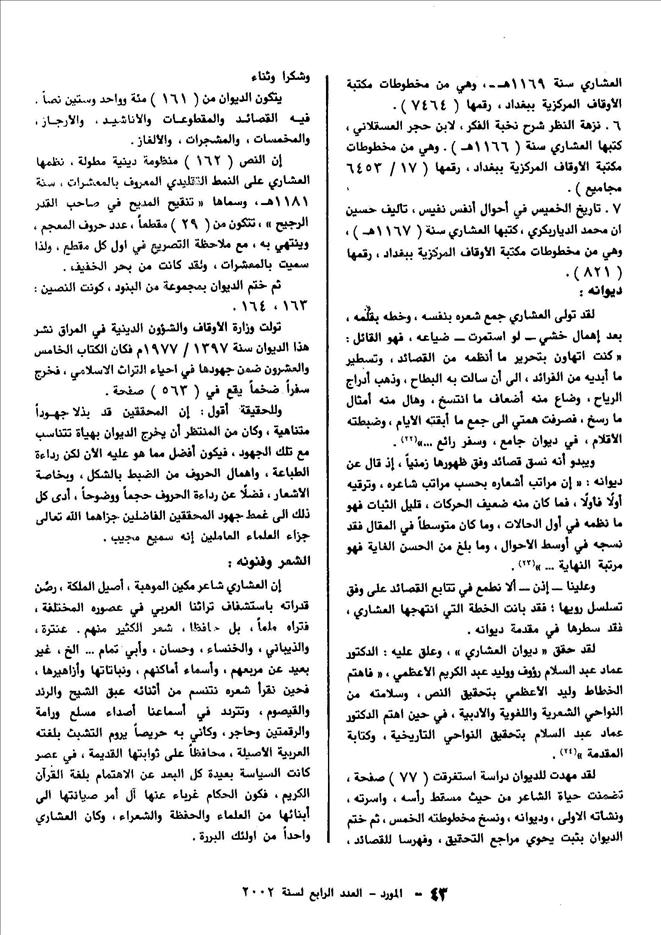 العشاري سنة ١١٦٩هـ ـ ، وهي من مخطوطات مكتبة
الأوقاف المركزية ببغداد ، رقمها ( ٧٤٦٤ ) .
٦ . نزهة النظر شرح نخبة الفكر ، لابن حجر العسقلاني ،
كتبها العشاري سنة ( ١١٦٦هـ ) . وهي من مخطوطات
مكتبة الأوقاف المركزية ببغداد ، رقمها ( ١٧ / ٦٤٥٣
مجاميع ) .
٧ . تاريخ الخميس في أحوال أنفس نفيس ، تأليف حسين
ان محمد الدياربكري ، كتبها العشاري سنة ( ١١٦٧هـ ) ،
وهي من مخطوطات مكتبة الأوقاف المركزية ببغداد ، رقمها
( ٨٢١ ) .
ديوانه :
لقد تولى العشاري جمع شعره بنفسه ، وخطه بقلمه ،
بعد إهمال خشي ــ لو استمرت ــ ضياعه ، فهو القائل :
« كنت اتهاون بتحرير ما أنظمه من القصائد ، وتسطير
ما أبديه من الفرائد ، الى أن سالت به البطاح ، وذهب أدراج
الرياح ، وضاع منه أضعاف ما انتسخ ، وهال منه أمثال
ما رسخ ، فصرفت همتي الى جمع ما أبقته الأيام ، وضبطته
الأقلام ، في ديوان جامع ، وسفر رائع ...»(٢٢) .
ويبدو أنه نسق قصائد وفق ظهورها زمنياً ، إذ قال عن
ديوانه : « إن مراتب أشعاره بحسب مراتب شاعره ، وترقيه
أولًا فأولًا ، فما كان منه ضعيف الحركات ، قليل الثبات فهو
ما نظمه في أول الحالات ، وما كان متوسطاً في المقال فقد
نسجه في أوسط الأحوال ، وما بلغ من الحسن الغاية فهو
مرتبة النهاية ... »(٢٣) .
وعلينا ــ إذن ــ ألا نطمع في تتابع القصائد على وفق
تسلسل رويها ؛ فقد بانت الخطة التي انتهجها العشاري ،
فقد سطرها في مقدمة ديوانه .
لقد حقق « ديوان العشاري » ، وعلق عليه : الدكتور
عماد عبد السلام رؤوف ووليد عبد الكريم الأعظمي ، « فاهتم
الخطاط وليد الأعظمي بتحقيق النص ، وسلامته من
النواحي الشعرية واللغوية والأدبية ، في حين اهتم الدكتور
عماد عبد السلام بتحقيق النواحي التاريخية ، وكتابة
المقدمة »(٢٤) .
لقد مهدت للديوان دراسة استغرقت ( ٧٧ ) صفحة ،
تضمنت حياة الشاعر من حيث مسقط رأسه ، واسرته ،
ونشاته الاولى ، وديوانه ، ونسخ مخطوطته الخمس ، ثم ختم
الديوان بثبت يحوي مراجع التحقيق ، وفهرسا للقصائد ،
وشكرا وثناء
يتكون الديوان من ( ١٦١ ) مئة وواحد وستين نصاً .
فيه القصائد والمقطوعات والأناشيد ، والأرجاز ،
والمخمسات ، والمشجرات ، والألغاز .
إن النص ( ١٦٢ ) منظومة دينية مطولة ، نظمها
العشاري على النمط التقليدي المعروف بالمعشرات ، سنة
١١٨١هـ ، وسماها « تنقيح المديح في صاحب القدر
الرجيح » ، تتكون من ( ٢٩ ) مقطعاً ، عدد حروف المعجم ،
وينتهي به ، مع ملاحظة التصريع في اول كل مقطع ، ولذا
سميت بالمعشرات ، ولقد كانت من بحر الخفيف .
ثم ختم الديوان بمجموعة من البنود ، كونت النصين :
١٦٣ ، ١٦٤ .
تولت وزارة الأوقاف والشؤون الدينية في العراق نشر
هذا الديوان سنة ١٣٩٧ / ١٩٧٧م فكان الكتاب الخامس
والعشرون ضمن جهودها في احياء التراث الاسلامي ، فخرج
سفراً ضخماً يقع في ( ٥٦٣ ) صفحة .
وللحقيقة أقول : إن المحققين قد بذلا جهوداً
متناهية ، وكان من المنتظر أن يخرج الديوان بهياة تتناسب
مع تلك الجهود ، فيكون أفضل مما هو عليه الآن لكن رداءة
الطباعة ، واهمال الحروف من الضبط بالشكل ، وبخاصة
الأشعار ، فضلًا عن رداءة الحروف حجماً ووضوحاً ، أدى كل
ذلك الى غمط جهود المحققين الفاضلين جزاهما الله تعالى
جزاء العلماء العاملين إنه سميع مجيب .
الشعر وفنونه :
إن العشاري شاعر مكين الموهبة ، أصيل الملكة ، رصّن
قدراته باستشفاف تراثنا العربي في عصوره المختلفة ،
فتراه ملماً ، بل حافظا ، شعر الكثير منهم . عنترة ،
والذبياني ، والخنساء ، وحسان ، وأبي تمام ... الخ ، غير
بعيد عن مربعهم ، وأسماء أماكنهم ، ونباتاتها وأزاهيرها ،
فحين نقرأ شعره نتنسم من أثنائه عبق الشيح والرند
والقيصوم ، وتتردد في أسماعنا أصداء مسلع ورامة
والرقمتين وحاجر ، وكاني به حريصاً يروم التشبث بلغته
العربية الأصيلة ، محافظاً على ثوابتها القديمة ، في عصر
كانت السياسة بعيدة كل البعد عن الاهتمام بلغة القرآن
الكريم ، فكون الحكام غرباء عنها آل أمر صيانتها الى
أبنائها من العلماء والحفظة والشعراء ، وكان العشاري
واحداً من اولئك البررة .
٤٣ - المورد - العدد الرابع لسنة ٢٠٠٢